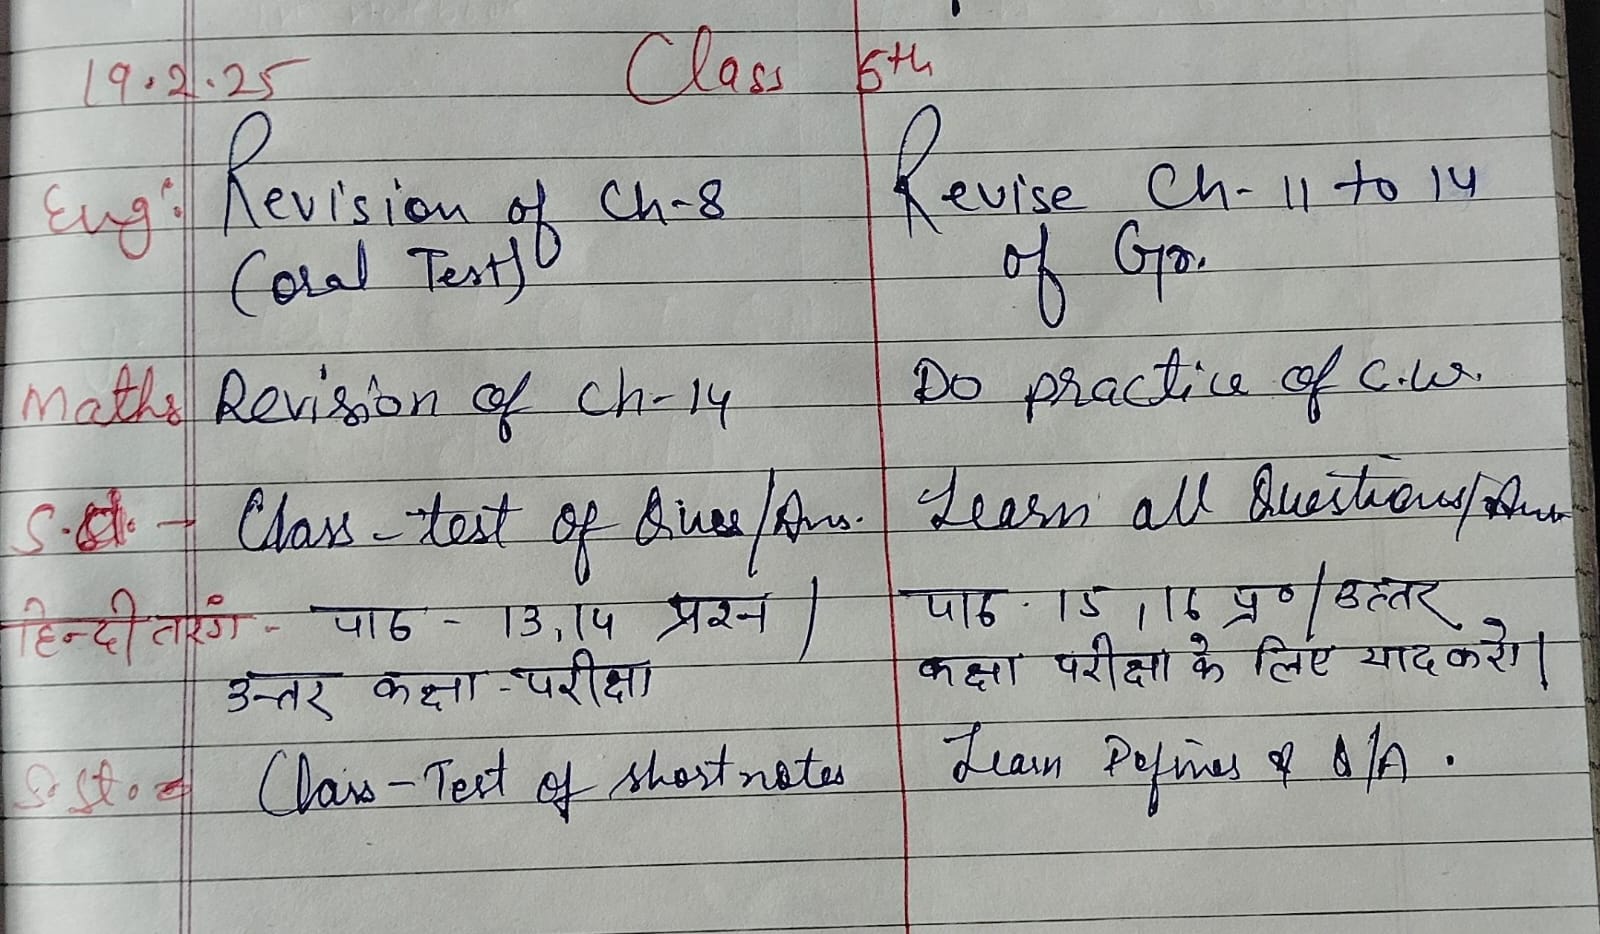 19.2.25 Class 5th
Eng: Revision of Ch-8 Revise Ch-11 to 14
(Oral Test) of Gr.
Maths Revision of Ch-14 Do practice of C.W.
S. - Class-test of Ques/Ans. Learn all Questions/Ans
हिन्दी तरंग - पाठ - 13,14 प्रश्न / पाठ - 15,16 प्र०/उत्तर
उत्तर कक्षा-परीक्षा कक्षा परीक्षा के लिए याद करो।
S.St. - Class-Test of short notes Learn Defines & Q/A.